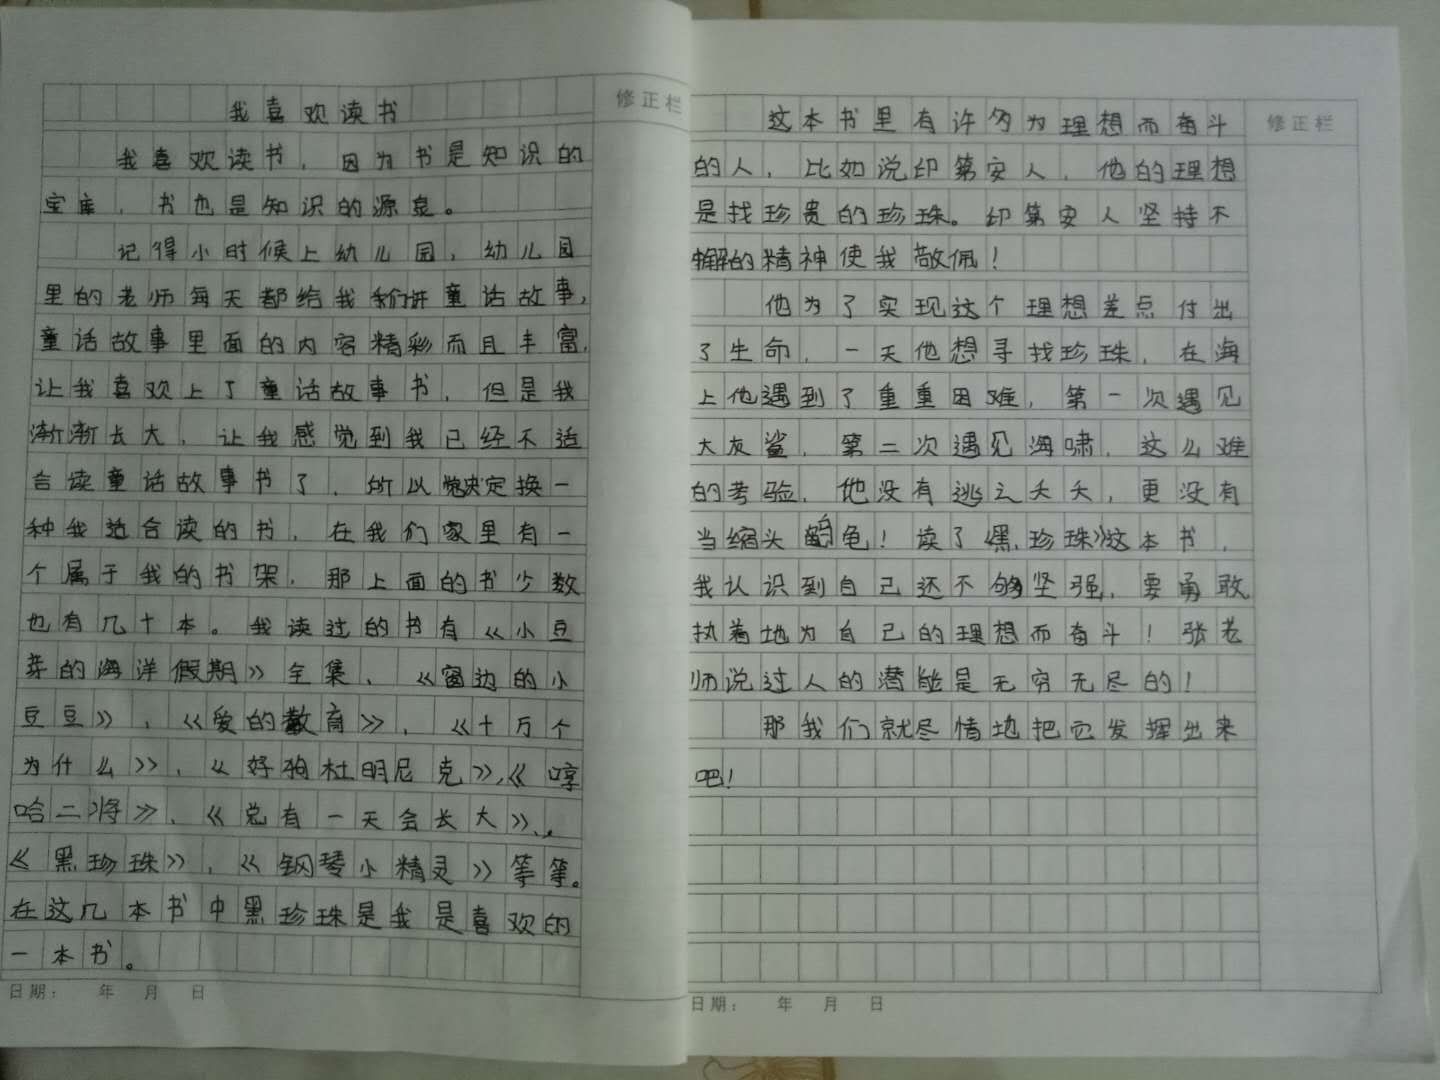 我喜欢读书
修正栏
我喜欢读书，因为书是知识的
宝库，书也是知识的源泉。
记得小时候上幼儿园，幼儿园
里的老师每天都给我们讲童话故事，
童话故事里面的内容精彩而且丰富，
让我喜欢上了童话故事书，但是我
渐渐长大，让我感觉到我已经不适
合读童话故事书了，所以决定换一
种我适合读的书，在我们家里有一
个属于我的书架，那上面的书少数
也有几十本。我读过的书有《小豆
芽的海洋假期》全集、《窗边的小
豆豆》，《爱的教育》，《十万个
为什么》、《好狗杜明尼克》，《哼
哈二将》、《总有一天会长大》、
《黑珍珠》，《钢琴小精灵》等等。
在这几本书中黑珍珠是我是喜欢的
一本书。
日期： 年 月 日
修正栏
这本书里有许多为理想而奋斗
的人，比如说印第安人，他的理想
是找珍贵的珍珠。印第安人坚持不
懈的精神使我敬佩！
他为了实现这个理想差点付出
了生命，一天他想寻找珍珠，在海
上他遇到了重重困难，第一次遇见
大灰鲨，第二次遇见海啸，这么难
的考验，他没有逃之夭夭，更没有
当缩头乌龟！读了《黑珍珠》这本书，
我认识到自己还不够坚强，要勇敢
执着地为自己的理想而奋斗！张老
师说过人的潜能是无穷无尽的！
那我们就尽情地把它发挥出来
吧！
日期： 年 月 日